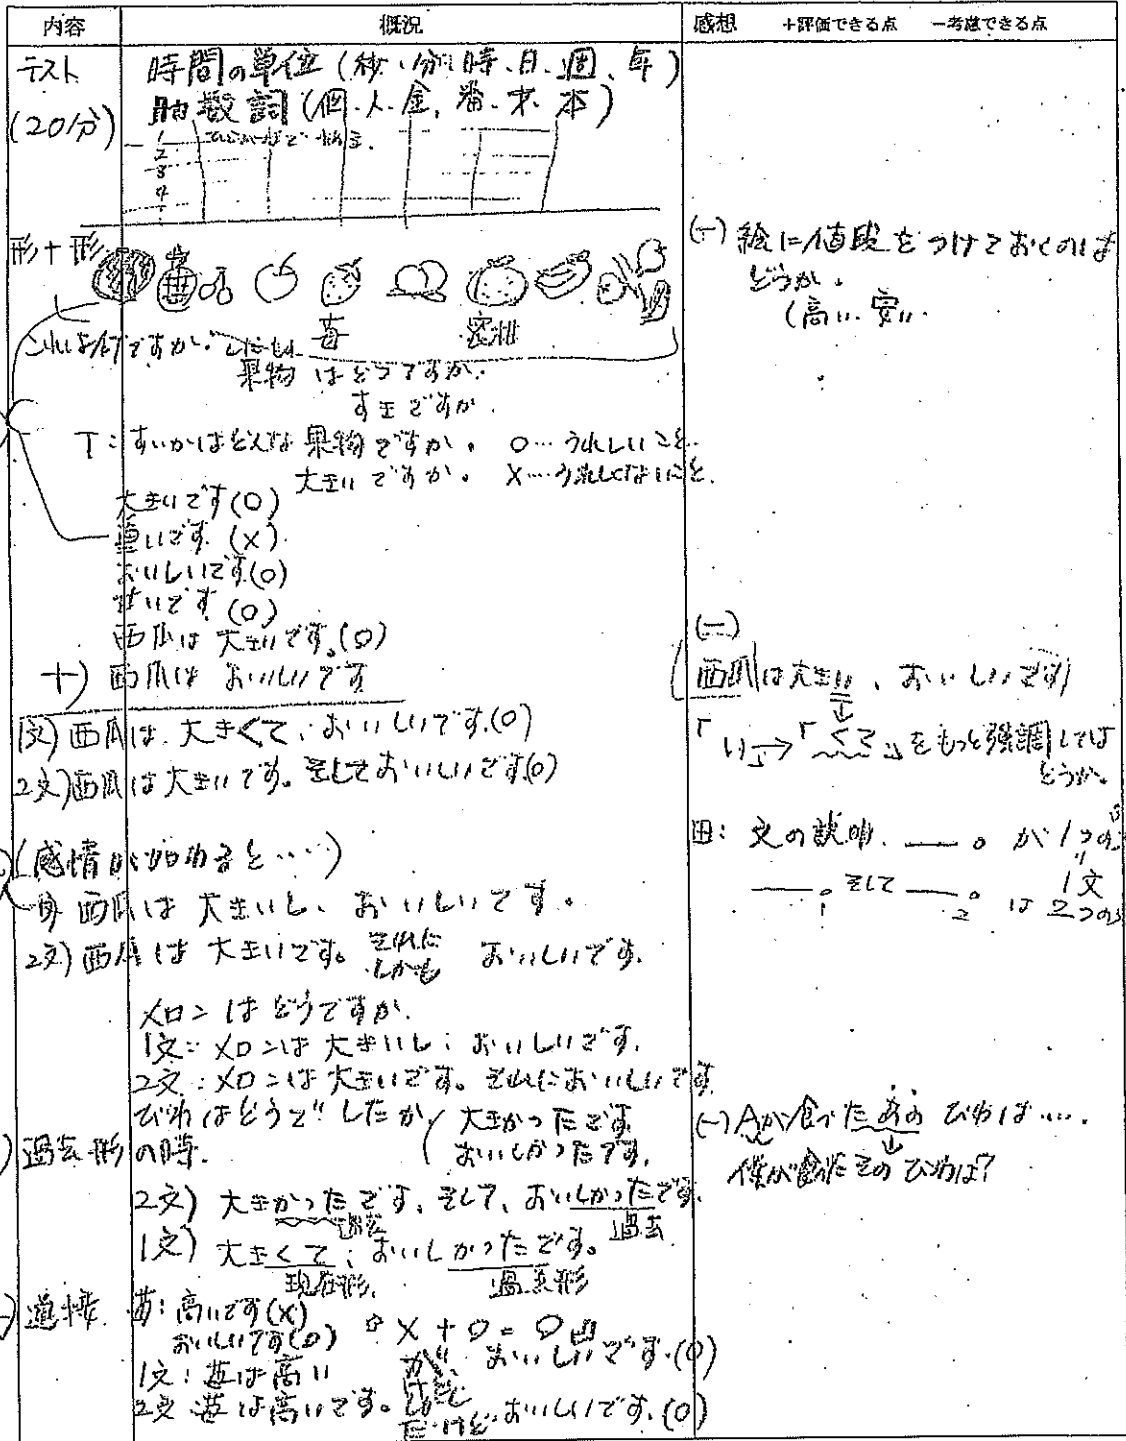 内容
概況
感想　＋評価できる点　－考慮できる点
テスト
(20分)
時間の単位 (秒、分、時、日、週、年)
助数詞 (個、人、金、番、才、本)
1
2
3
4
ひらがなで
形＋形
苺
蜜柑
これは何ですか。
果物はどうですか。
すきですか。
T：すいかはどんな果物ですか。 ○…うれしいこと。
大きいですか。 ×…うれしくないこと。
大きいです(○)
重いです (×)
おいしいです(○)
甘いです (○)
西瓜は大きいです。(○)
＋) 西瓜は おいしいです
1文) 西瓜は、大きくて、おいしいです。(○)
2文) 西瓜は大きいです。そしておいしいです(○)
(感情が加わると……)
西瓜は 大きいし、おいしいです。
2文) 西瓜は 大きいです。それに しかも おいしいです。
メロンはどうですか。
1文：メロンは大きいし、おいしいです。
2文：メロンは大きいです。それにおいしいです。
びわはどうでしたか
大きかったです
おいしかったです。
過去形の時。
2文) 大きかったです。そして、おいしかったです。
過去
過去
1文) 大きくて、おいしかったです。
現在形
過去形
逆接
苺：高いです(×)
おいしいです(○)
×＋○＝○
1文：苺は高い が、けれど おいしいです。(○)
2文 苺は高いです。だけど おいしいです。(○)
(－) 絵に値段をつけておくのは
どうか。
(高い、安い
(－)
(西瓜は大きい、おいしいです)
「い」→「くて」をもっと強調しては
どうか。
田：文の説明、——。が1つの
1文
——。そして——。は2つの
1
2
(－) Aが食べたあの びわは….
僕が食べたその びわは？